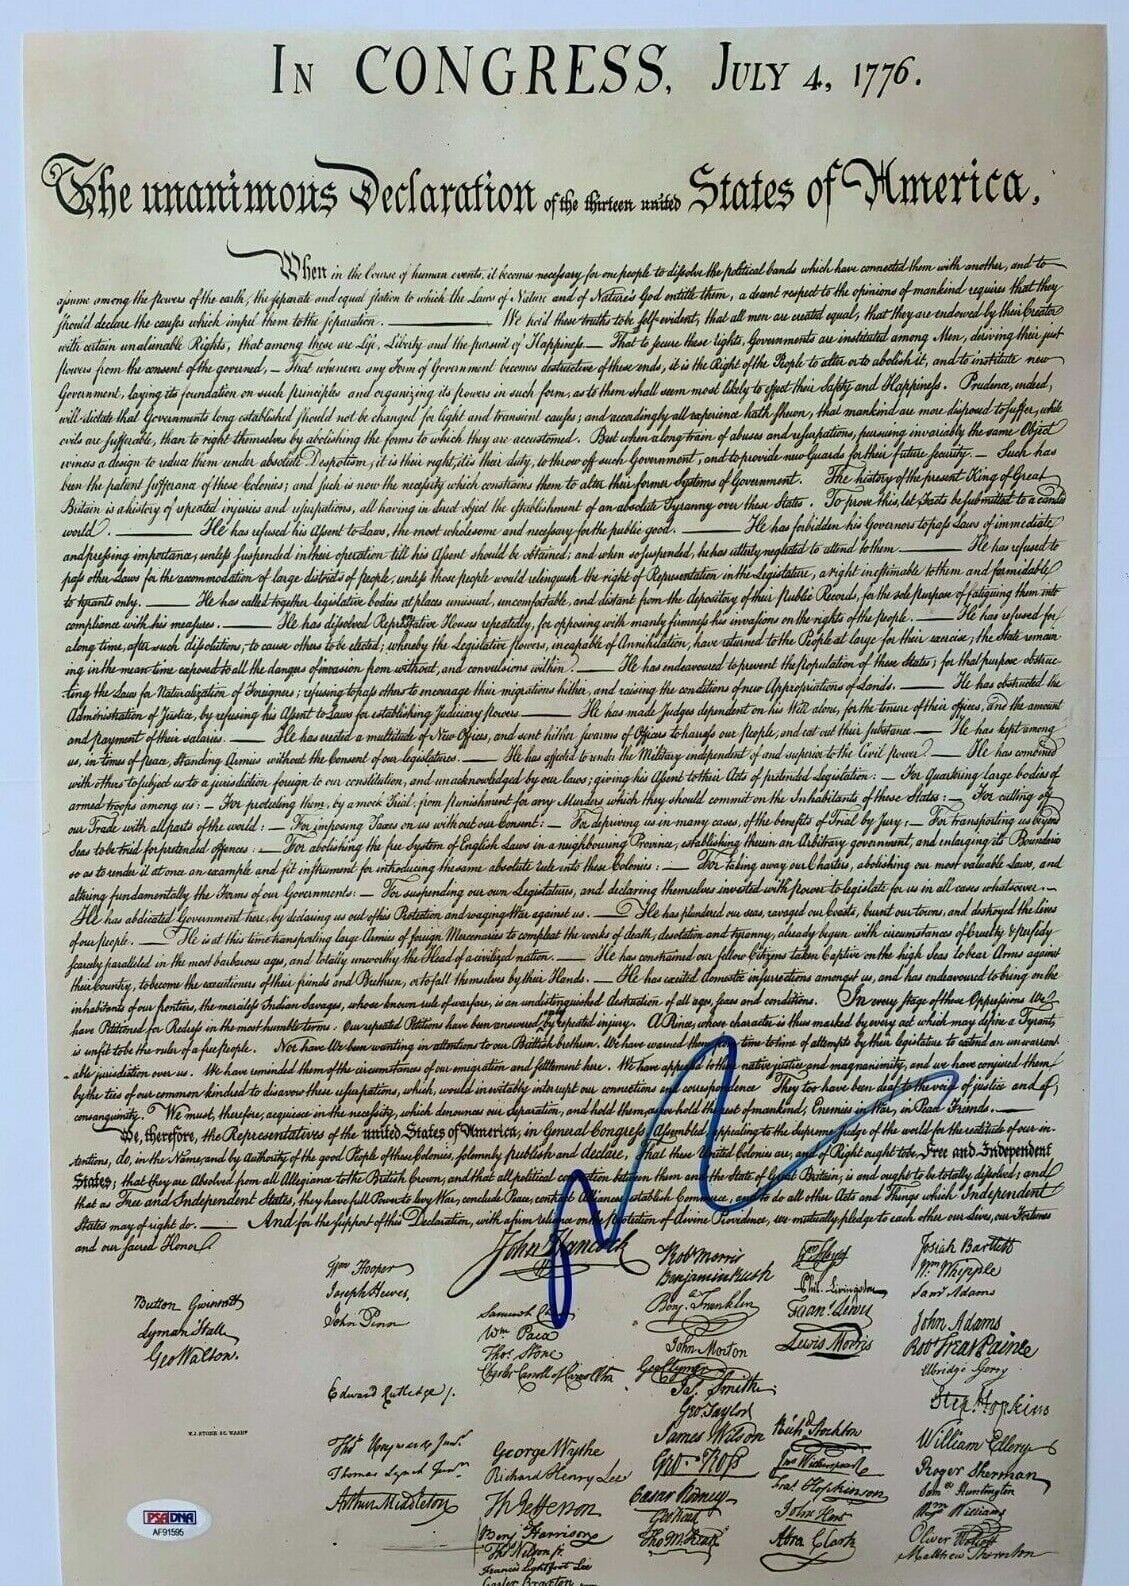 IN CONGRESS, JULY 4, 1776.
The unanimous Declaration of the thirteen united States of America,
When in the Course of human events, it becomes necessary for one people to dissolve the political bands which have connected them with another, and to
assume among the powers of the earth, the separate and equal station to which the Laws of Nature and of Nature's God entitle them, a decent respect to the opinions of mankind requires that they
should declare the causes which impel them to the separation. ——— We hold these truths to be self-evident, that all men are created equal, that they are endowed by their Creator
with certain unalienable Rights, that among these are Life, Liberty and the pursuit of Happiness.— That to secure these rights, Governments are instituted among Men, deriving their just
powers from the consent of the governed, — That whenever any Form of Government becomes destructive of these ends, it is the Right of the People to alter or to abolish it, and to institute new
Government, laying its foundation on such principles and organizing its powers in such form, as to them shall seem most likely to effect their Safety and Happiness. Prudence, indeed,
will dictate that Governments long established should not be changed for light and transient causes; and accordingly all experience hath shewn, that mankind are more disposed to suffer, while
evils are sufferable, than to right themselves by abolishing the forms to which they are accustomed. But when a long train of abuses and usurpations, pursuing invariably the same Object
evinces a design to reduce them under absolute Despotism, it is their right, it is their duty, to throw off such Government, and to provide new Guards for their future security.— Such has
been the patient sufferance of these Colonies; and such is now the necessity which constrains them to alter their former Systems of Government. The history of the present King of Great
Britain is a history of repeated injuries and usurpations, all having in direct object the establishment of an absolute Tyranny over these States. To prove this, let Facts be submitted to a candid
world. ——— He has refused his Assent to Laws, the most wholesome and necessary for the public good. ——— He has forbidden his Governors to pass Laws of immediate
and pressing importance, unless suspended in their operation till his Assent should be obtained; and when so suspended, he has utterly neglected to attend to them. ——— He has refused to
pass other Laws for the accommodation of large districts of people, unless those people would relinquish the right of Representation in the Legislature, a right inestimable to them and formidable
to tyrants only. ——— He has called together legislative bodies at places unusual, uncomfortable, and distant from the depository of their Public Records, for the sole purpose of fatiguing them into
compliance with his measures. ——— He has dissolved Representative Houses repeatedly, for opposing with manly firmness his invasions on the rights of the people. ——— He has refused for
a long time, after such dissolutions, to cause others to be elected; whereby the Legislative powers, incapable of Annihilation, have returned to the People at large for their exercise; the State remain
ing in the mean time exposed to all the dangers of invasion from without, and convulsions within. ——— He has endeavoured to prevent the population of these States; for that purpose obstruc
ting the Laws for Naturalization of Foreigners; refusing to pass others to encourage their migrations hither, and raising the conditions of new Appropriations of Lands. ——— He has obstructed the
Administration of Justice, by refusing his Assent to Laws for establishing Judiciary powers. ——— He has made Judges dependent on his Will alone, for the tenure of their offices, and the amount
and payment of their salaries. ——— He has erected a multitude of New Offices, and sent hither swarms of Officers to harrass our people, and eat out their substance. ——— He has kept among
us, in times of peace, Standing Armies without the Consent of our legislatures. ——— He has affected to render the Military independent of and superior to the Civil power. ——— He has combined
with others to subject us to a jurisdiction foreign to our constitution, and unacknowledged by our laws; giving his Assent to their Acts of pretended Legislation: — For Quartering large bodies of
armed troops among us: — For protecting them, by a mock Trial, from punishment for any Murders which they should commit on the Inhabitants of these States: — For cutting off
our Trade with all parts of the world: — For imposing Taxes on us without our Consent: — For depriving us in many cases, of the benefits of Trial by Jury: — For transporting us beyond
Seas to be tried for pretended offences: — For abolishing the free System of English Laws in a neighbouring Province, establishing therein an Arbitrary government, and enlarging its Boundaries
so as to render it at once an example and fit instrument for introducing the same absolute rule into these Colonies: — For taking away our Charters, abolishing our most valuable Laws, and
altering fundamentally the Forms of our Governments: — For suspending our own Legislatures, and declaring themselves invested with power to legislate for us in all cases whatsoever. —
He has abdicated Government here, by declaring us out of his Protection and waging War against us. — He has plundered our seas, ravaged our Coasts, burnt our towns, and destroyed the lives
of our people. — He is at this time transporting large Armies of foreign Mercenaries to compleat the works of death, desolation and tyranny, already begun with circumstances of Cruelty & perfidy
scarcely paralleled in the most barbarous ages, and totally unworthy the Head of a civilized nation. — He has constrained our fellow Citizens taken Captive on the high Seas to bear Arms against
their Country, to become the executioners of their friends and Brethren, or to fall themselves by their Hands. — He has excited domestic insurrections amongst us, and has endeavoured to bring on the
inhabitants of our frontiers, the merciless Indian Savages, whose known rule of warfare, is an undistinguished destruction of all ages, sexes and conditions. In every stage of these Oppressions We
have Petitioned for Redress in the most humble terms: Our repeated Petitions have been answered only by repeated injury. A Prince, whose character is thus marked by every act which may define a Tyrant,
is unfit to be the ruler of a free people. Nor have We been wanting in attentions to our Brittish brethren. We have warned them from time to time of attempts by their legislature to extend an unwarrant
able jurisdiction over us. We have reminded them of the circumstances of our emigration and settlement here. We have appealed to their native justice and magnanimity, and we have conjured them
by the ties of our common kindred to disavow these usurpations, which, would inevitably interrupt our connections and correspondence. They too have been deaf to the voice of justice and of
consanguinity. We must, therefore, acquiesce in the necessity, which denounces our Separation, and hold them, as we hold the rest of mankind, Enemies in War, in Peace Friends. —
We, therefore, the Representatives of the united States of America, in General Congress, Assembled, appealing to the Supreme Judge of the world for the rectitude of our in-
tentions, do, in the Name, and by Authority of the good People of these Colonies, solemnly publish and declare, That these United Colonies are, and of Right ought to be Free and Independent
States; that they are Absolved from all Allegiance to the British Crown, and that all political connection between them and the State of Great Britain, is and ought to be totally dissolved; and
that as Free and Independent States, they have full Power to levy War, conclude Peace, contract Alliances, establish Commerce, and to do all other Acts and Things which Independent
States may of right do. — And for the support of this Declaration, with a firm reliance on the Protection of divine Providence, we mutually pledge to each other our Lives, our Fortunes
and our sacred Honor.
Button Gwinnett
Lyman Hall
Geo Walton.
Wm Hooper
Joseph Hewes,
John Penn
Edward Rutledge /.
Thos Heyward Junr.
Thomas Lynch Junr.
Arthur Middleton
John Hancock
Samuel Chase
Wm Paca
Thos Stone
Charles Carroll of Carrollton
George Wythe
Richard Henry Lee
Th Jefferson
Benj Harrison
Thos Nelson jr.
Francis Lightfoot Lee
Carter Braxton
Robt Morris
Benjamin Rush
Benj. Franklin
John Morton
Geo Clymer
Jas. Smith
Geo. Taylor
James Wilson
Geo. Ross
Caesar Rodney
Geo Read
Tho M:Kean
Wm Floyd
Phil. Livingston
Frans. Lewis
Lewis Morris
Richd Stockton
Jno Witherspoon
Fras. Hopkinson
John Hart
Abra Clark
Josiah Bartlett
Wm Whipple
Saml Adams
John Adams
Robt Treat Paine
Elbridge Gerry
Step. Hopkins
William Ellery
Roger Sherman
Saml Huntington
Wm Williams
Oliver Wolcott
Matthew Thornton
W.J. STONE SC. WASHN
PSA DNA
AF91595